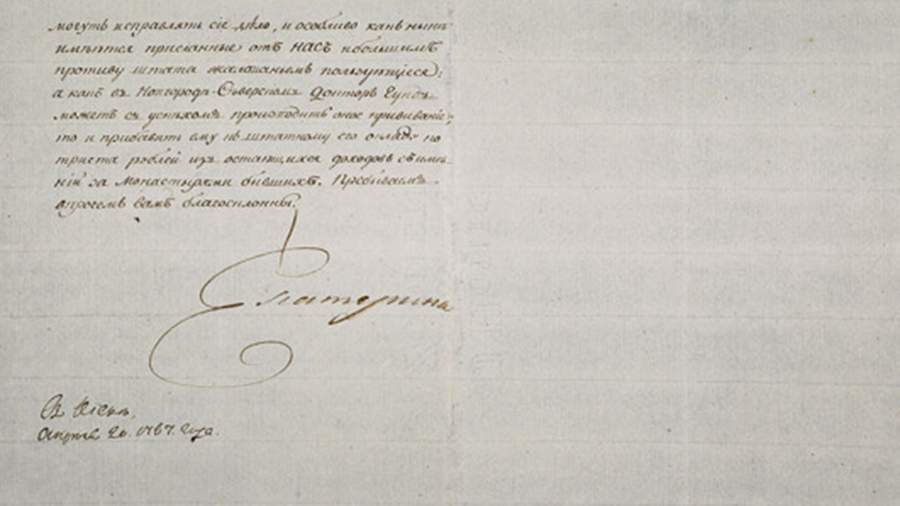 могутъ исправлять сіе дѣло, и особливо какъ нынѣ
имѣются присланные отъ НАСЪ и большимъ
противу штата жалованьемъ пользующіеся:
а какъ въ Новгородѣ-Сѣверскомъ Докторъ Гунъ
можетъ съ успѣхомъ производить оное прививаніе,
то и прибавить ему къ штатному его окладу по
триста рублей изъ остающихся доходовъ съ имѣ-
ній за Монастырями бывшихъ. Пребываемъ
впрочемъ вамъ благосклонны.
Екатерина
Въ Кіевѣ,
Апрѣля 20. 1787. года.